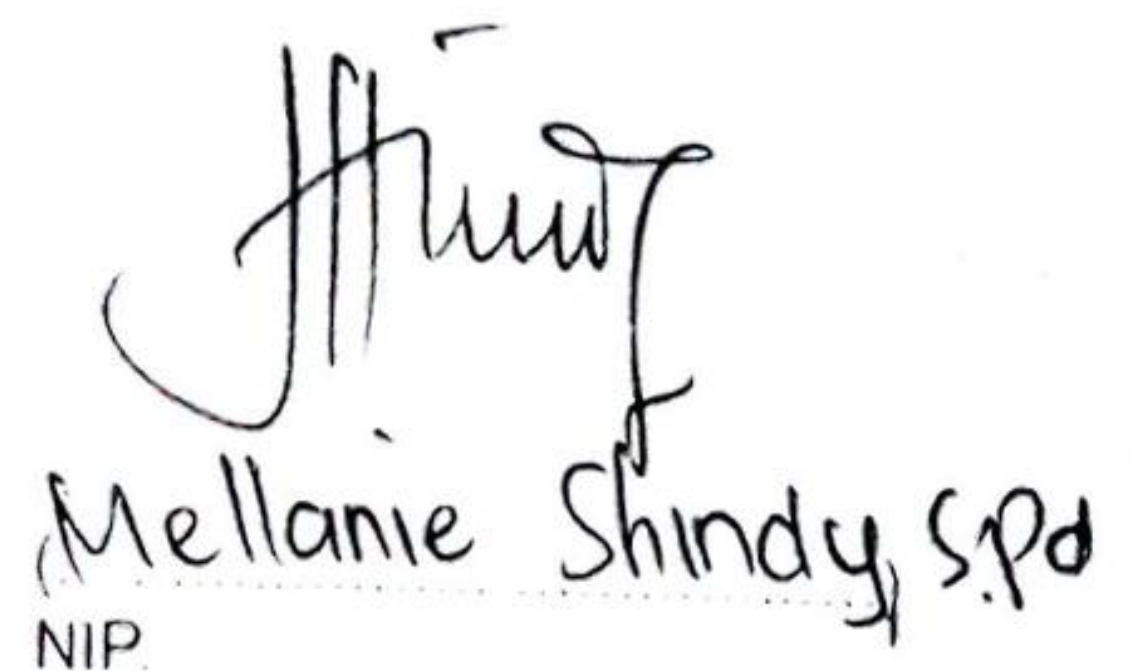 (Mellanie Shindy, S.Pd
NIP.